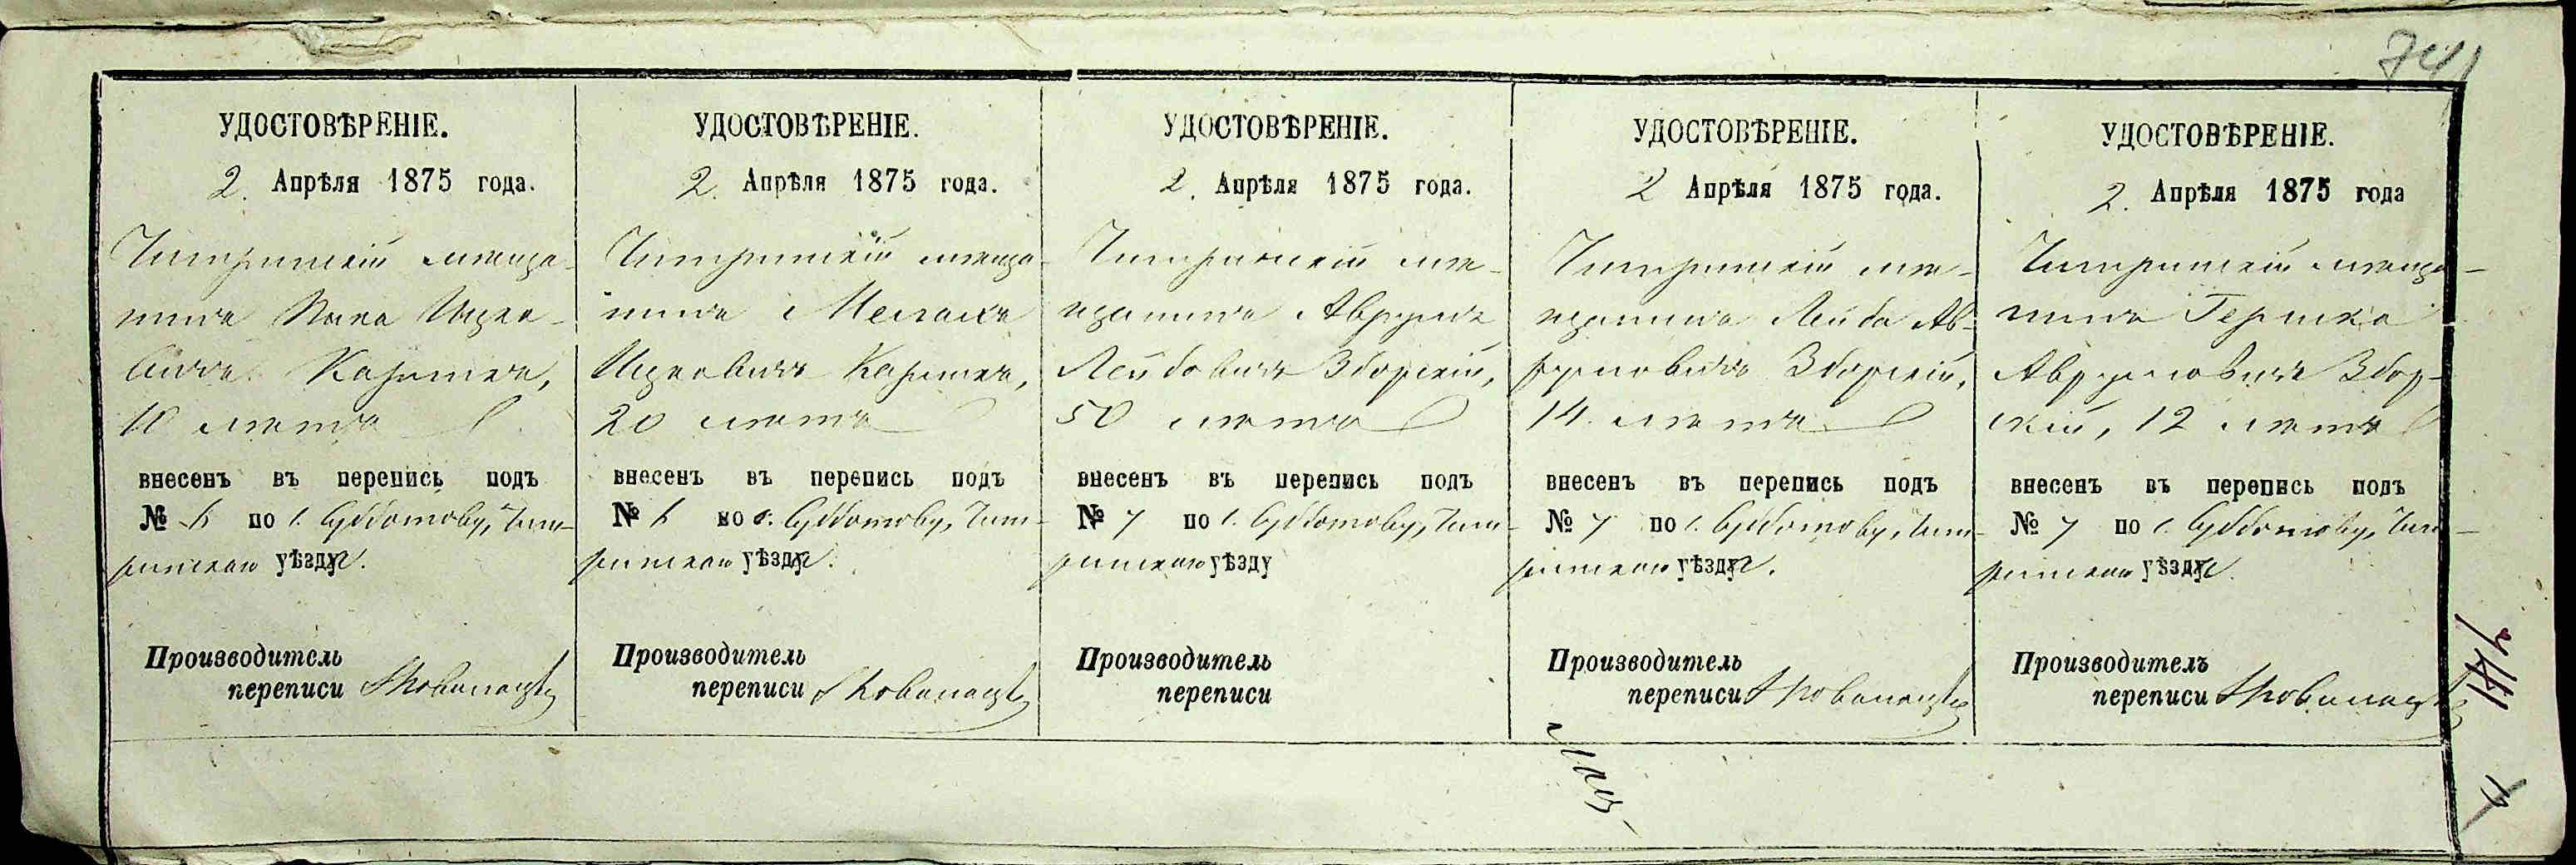 741
УДОСТОВѢРЕНІЕ.
2. Апрѣля 1875 года.
Чигиринскій мѣща-
нинъ Ицко-
вичъ
10 лѣтъ
внесенъ въ перепись подъ
№ 6 по с. Субботову, Чиги-
ринскаго уѣзда.
Производитель
переписи
УДОСТОВѢРЕНІЕ.
2. Апрѣля 1875 года.
Чигиринскій мѣща-
нинъ
Ицковичъ
20 лѣтъ
внесенъ въ перепись подъ
№ 6 по с. Субботову, Чиги-
ринскаго уѣзда.
Производитель
переписи
УДОСТОВѢРЕНІЕ.
2. Апрѣля 1875 года.
Чигиринскій мѣ-
щанинъ Аврумъ
Лейбовичъ Зборскій,
50 лѣтъ
внесенъ въ перепись подъ
№ 7 по с. Субботову, Чиги-
ринскаго уѣзду
Производитель
переписи
УДОСТОВѢРЕНІЕ.
2 Апрѣля 1875 года.
Чигиринскій мѣ-
щанинъ Лейба Ав-
румовичъ Зборскій,
14 лѣтъ
внесенъ въ перепись подъ
№ 7 по с. Субботову, Чиги-
ринскаго уѣзда.
Производитель
переписи
УДОСТОВѢРЕНІЕ.
2. Апрѣля 1875 года
Чигиринскій мѣща-
нинъ Гершко
Аврумовичъ Збор-
скій, 12 лѣтъ
внесенъ въ перепись подъ
№ 7 по с. Субботову, Чиги-
ринскаго уѣзда.
Производитель
переписи